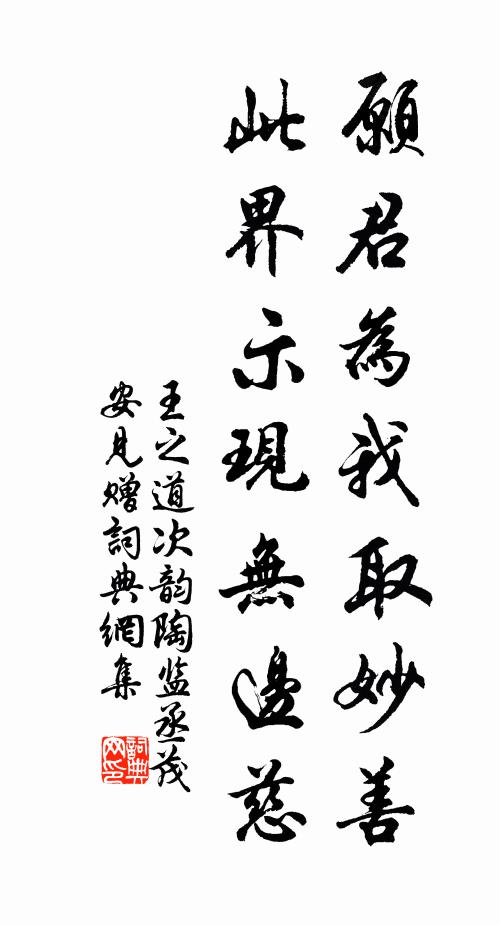 願君為我取妙善
此界示現無邊慈
王之道次韵陶监丞茂
安見贈詞典網集
詞典网印